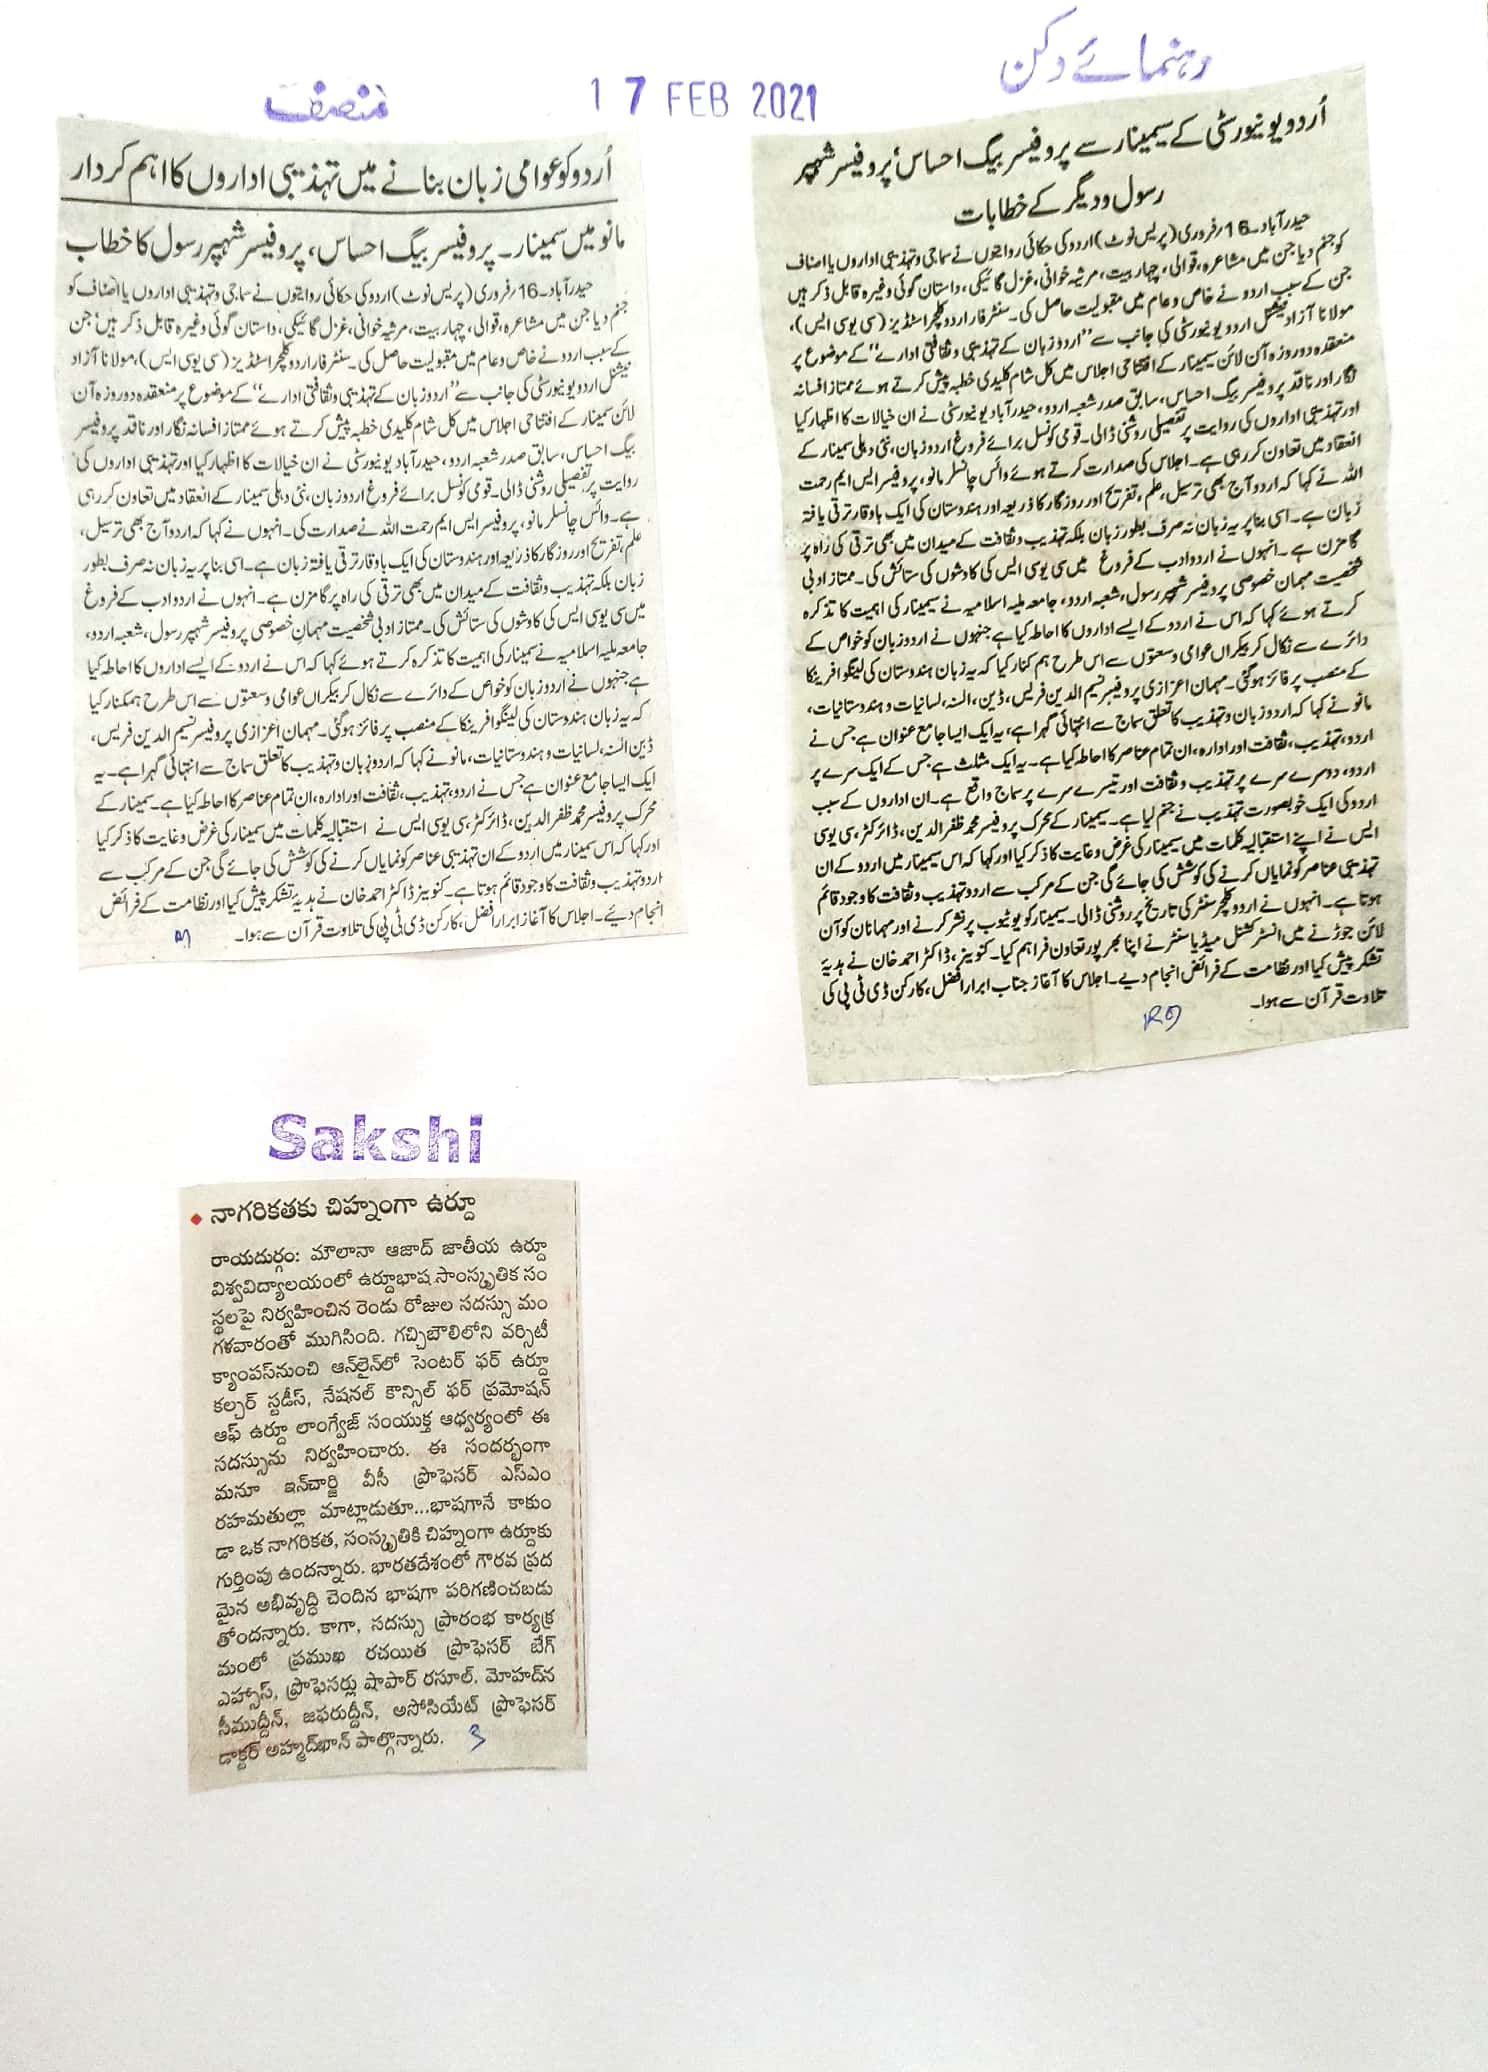 منصف
17 FEB 2021
رہنمائے دکن
اُردو کو عوامی زبان بنانے میں تہذیبی اداروں کا اہم کردار
مانو میں سمینار۔ پروفیسر بیگ احساس، پروفیسر شہپر رسول کا خطاب
حیدرآباد۔16/فروری (پریس نوٹ) اردو کی حکائی روایتوں نے سماجی و تہذیبی اداروں یا اصناف کو
جنم دیا جن میں مشاعرہ، قوالی، چہار بیت، مرثیہ خوانی، غزل گائیکی، داستان گوئی وغیرہ قابل ذکر ہیں؛ جن
کے سبب اردو نے خاص و عام میں مقبولیت حاصل کی۔ سنٹر فار اردو کلچر اسٹڈیز (سی یو سی ایس)، مولانا آزاد
نیشنل اردو یونیورسٹی کی جانب سے ”اردو زبان کے تہذیبی و ثقافتی ادارے“ کے موضوع پر منعقدہ دو روزہ آن
لائن سمینار کے افتتاحی اجلاس میں کل شام کلیدی خطبہ پیش کرتے ہوئے ممتاز افسانہ نگار اور ناقد پروفیسر
بیگ احساس، سابق صدر شعبہ اردو، حیدرآباد یونیورسٹی نے ان خیالات کا اظہار کیا اور تہذیبی اداروں کی
روایت پر تفصیلی روشنی ڈالی۔ قومی کونسل برائے فروغ اردو زبان، نئی دہلی سمینار کے انعقاد میں تعاون کر رہی
ہے۔ وائس چانسلر مانو، پروفیسر ایس ایم رحمت اللہ نے صدارت کی۔ انہوں نے کہا کہ اردو آج بھی ترسیل،
علم، تفریح اور روزگار کا ذریعہ اور ہندوستان کی ایک باوقار ترقی یافتہ زبان ہے۔ اسی بنا پر یہ زبان نہ صرف بطور
زبان بلکہ تہذیب و ثقافت کے میدان میں بھی ترقی کی راہ پر گامزن ہے۔ انہوں نے اردو ادب کے فروغ
میں سی یو سی ایس کی کاوشوں کی ستائش کی۔ ممتاز ادبی شخصیت مہمان خصوصی پروفیسر شہپر رسول، شعبہ اردو،
جامعہ ملیہ اسلامیہ نے سمینار کی اہمیت کا تذکرہ کرتے ہوئے کہا کہ اس نے اردو کے ایسے اداروں کا احاطہ کیا
ہے جنہوں نے اردو زبان کو خواص کے دائرے سے نکال کر بیکراں عوامی وسعتوں سے اس طرح ہمکنار کیا
کہ یہ زبان ہندوستان کی لینگوا فرینکا کے منصب پر فائز ہوگئی۔ مہمان اعزازی پروفیسر نسیم الدین فریس،
ڈین السنہ، لسانیات و ہندوستانیات، مانو نے کہا کہ اردو زبان و تہذیب کا تعلق سماج سے انتہائی گہرا ہے۔ یہ
ایک ایسا جامع عنوان ہے جس نے اردو، تہذیب، ثقافت اور ادارہ، ان تمام عناصر کا احاطہ کیا ہے۔ سمینار کے
محرک پروفیسر محمد ظفر الدین، ڈائرکٹر، سی یو سی ایس نے استقبالیہ کلمات میں سمینار کی غرض و غایت کا ذکر کیا
اور کہا کہ اس سمینار میں اردو کے ان تہذیبی عناصر کو نمایاں کرنے کی کوشش کی جائے گی جن کے مرکب سے
اردو تہذیب و ثقافت کا وجود قائم ہوتا ہے۔ کنوینر ڈاکٹر احمد خان نے ہدیہ تشکر پیش کیا اور نظامت کے فرائض
انجام دیئے۔ اجلاس کا آغاز ابرار افضل، کارکن ڈی ٹی پی کی تلاوت قرآن سے ہوا۔
اُردو یونیورسٹی کے سیمینار سے پروفیسر بیگ احساس‘ پروفیسر شہپر
رسول و دیگر کے خطابات
حیدرآباد۔16/فروری (پریس نوٹ) اردو کی حکائی روایتوں نے سماجی و تہذیبی اداروں یا اصناف
کو جنم دیا جن میں مشاعرہ، قوالی، چہار بیت، مرثیہ خوانی، غزل گائیکی، داستان گوئی وغیرہ قابل ذکر ہیں
جن کے سبب اردو نے خاص و عام میں مقبولیت حاصل کی۔ سنٹر فار اردو کلچر اسٹڈیز (سی یو سی ایس)،
مولانا آزاد نیشنل اردو یونیورسٹی کی جانب سے ”اردو زبان کے تہذیبی و ثقافتی ادارے“ کے موضوع پر
منعقدہ دو روزہ آن لائن سیمینار کے افتتاحی اجلاس میں کل شام کلیدی خطبہ پیش کرتے ہوئے ممتاز افسانہ
نگار اور ناقد پروفیسر بیگ احساس، سابق صدر شعبہ اردو، حیدرآباد یونیورسٹی نے ان خیالات کا اظہار کیا
اور تہذیبی اداروں کی روایت پر تفصیلی روشنی ڈالی۔ قومی کونسل برائے فروغ اردو زبان، نئی دہلی سیمینار کے
انعقاد میں تعاون کر رہی ہے۔ اجلاس کی صدارت کرتے ہوئے وائس چانسلر مانو، پروفیسر ایس ایم رحمت
اللہ نے کہا کہ اردو آج بھی ترسیل، علم، تفریح اور روزگار کا ذریعہ اور ہندوستان کی ایک باوقار ترقی یافتہ
زبان ہے۔ اسی بنا پر یہ زبان نہ صرف بطور زبان بلکہ تہذیب و ثقافت کے میدان میں بھی ترقی کی راہ پر
گامزن ہے۔ انہوں نے اردو ادب کے فروغ میں سی یو سی ایس کی کاوشوں کی ستائش کی۔ ممتاز ادبی
شخصیت مہمان خصوصی پروفیسر شہپر رسول، شعبہ اردو، جامعہ ملیہ اسلامیہ نے سیمینار کی اہمیت کا تذکرہ
کرتے ہوئے کہا کہ اس نے اردو کے ایسے اداروں کا احاطہ کیا ہے جنہوں نے اردو زبان کو خواص کے
دائرے سے نکال کر بیکراں عوامی وسعتوں سے اس طرح ہم کنار کیا کہ یہ زبان ہندوستان کی لینگوا فرینکا
کے منصب پر فائز ہوگئی۔ مہمان اعزازی پروفیسر نسیم الدین فریس، ڈین، السنہ، لسانیات و ہندوستانیات،
مانو نے کہا کہ اردو زبان و تہذیب کا تعلق سماج سے انتہائی گہرا ہے، یہ ایک ایسا جامع عنوان ہے جس نے
اردو، تہذیب، ثقافت اور ادارہ، ان تمام عناصر کا احاطہ کیا ہے۔ یہ ایک مثلث ہے جس کے ایک سرے پر
اردو، دوسرے سرے پر تہذیب و ثقافت اور تیسرے سرے پر سماج واقع ہے۔ ان اداروں کے سبب
اردو کی ایک خوبصورت تہذیب نے جنم لیا ہے۔ سیمینار کے محرک پروفیسر محمد ظفر الدین، ڈائرکٹر، سی یو سی
ایس نے اپنے استقبالیہ کلمات میں سیمینار کی غرض و غایت کا ذکر کیا اور کہا کہ اس سیمینار میں اردو کے ان
تہذیبی عناصر کو نمایاں کرنے کی کوشش کی جائے گی جن کے مرکب سے اردو تہذیب و ثقافت کا وجود قائم
ہوتا ہے۔ انہوں نے اردو کلچر سنٹر کی تاریخ پر روشنی ڈالی۔ سیمینار کو یوٹیوب پر نشر کرنے اور مہمانان کو آن
لائن جوڑنے میں انسٹرکشنل میڈیا سنٹر نے اپنا بھرپور تعاون فراہم کیا۔ کنوینر، ڈاکٹر احمد خان نے ہدیۂ
تشکر پیش کیا اور نظامت کے فرائض انجام دیے۔ اجلاس کا آغاز جناب ابرار افضل، کارکن ڈی ٹی پی کی
تلاوت قرآن سے ہوا۔
Sakshi
నాగరికతకు చిహ్నంగా ఉర్దూ
రాయదుర్గం: మౌలానా ఆజాద్ జాతీయ ఉర్దూ
విశ్వవిద్యాలయంలో ఉర్దూభాష సాంస్కృతిక సం
స్థలపై నిర్వహించిన రెండు రోజుల సదస్సు మం
గళవారంతో ముగిసింది. గచ్చిబౌలిలోని వర్సిటీ
క్యాంపస్‌నుంచి ఆన్‌లైన్‌లో సెంటర్ ఫర్ ఉర్దూ
కల్చర్ స్టడీస్, నేషనల్ కౌన్సిల్ ఫర్ ప్రమోషన్
ఆఫ్ ఉర్దూ లాంగ్వేజ్ సంయుక్త ఆధ్వర్యంలో ఈ
సదస్సును నిర్వహించారు. ఈ సందర్భంగా
మనూ ఇన్‌చార్జి వీసీ ప్రొఫెసర్ ఎస్ఎం
రహమతుల్లా మాట్లాడుతూ...భాషగానే కాకుం
డా ఒక నాగరికత, సంస్కృతికి చిహ్నంగా ఉర్దూకు
గుర్తింపు ఉందన్నారు. భారతదేశంలో గౌరవ ప్రద
మైన అభివృద్ధి చెందిన భాషగా పరిగణించబడు
తోందన్నారు. కాగా, సదస్సు ప్రారంభ కార్యక్ర
మంలో ప్రముఖ రచయిత ప్రొఫెసర్ బేగ్
ఎహ్సాస్, ప్రొఫెసర్లు షాపార్ రసూల్, మోహద్‌న
సీముద్దీన్, జఫరుద్దీన్, అసోసియేట్ ప్రొఫెసర్
డాక్టర్ అహ్మద్‌ఖాన్ పాల్గొన్నారు.
3